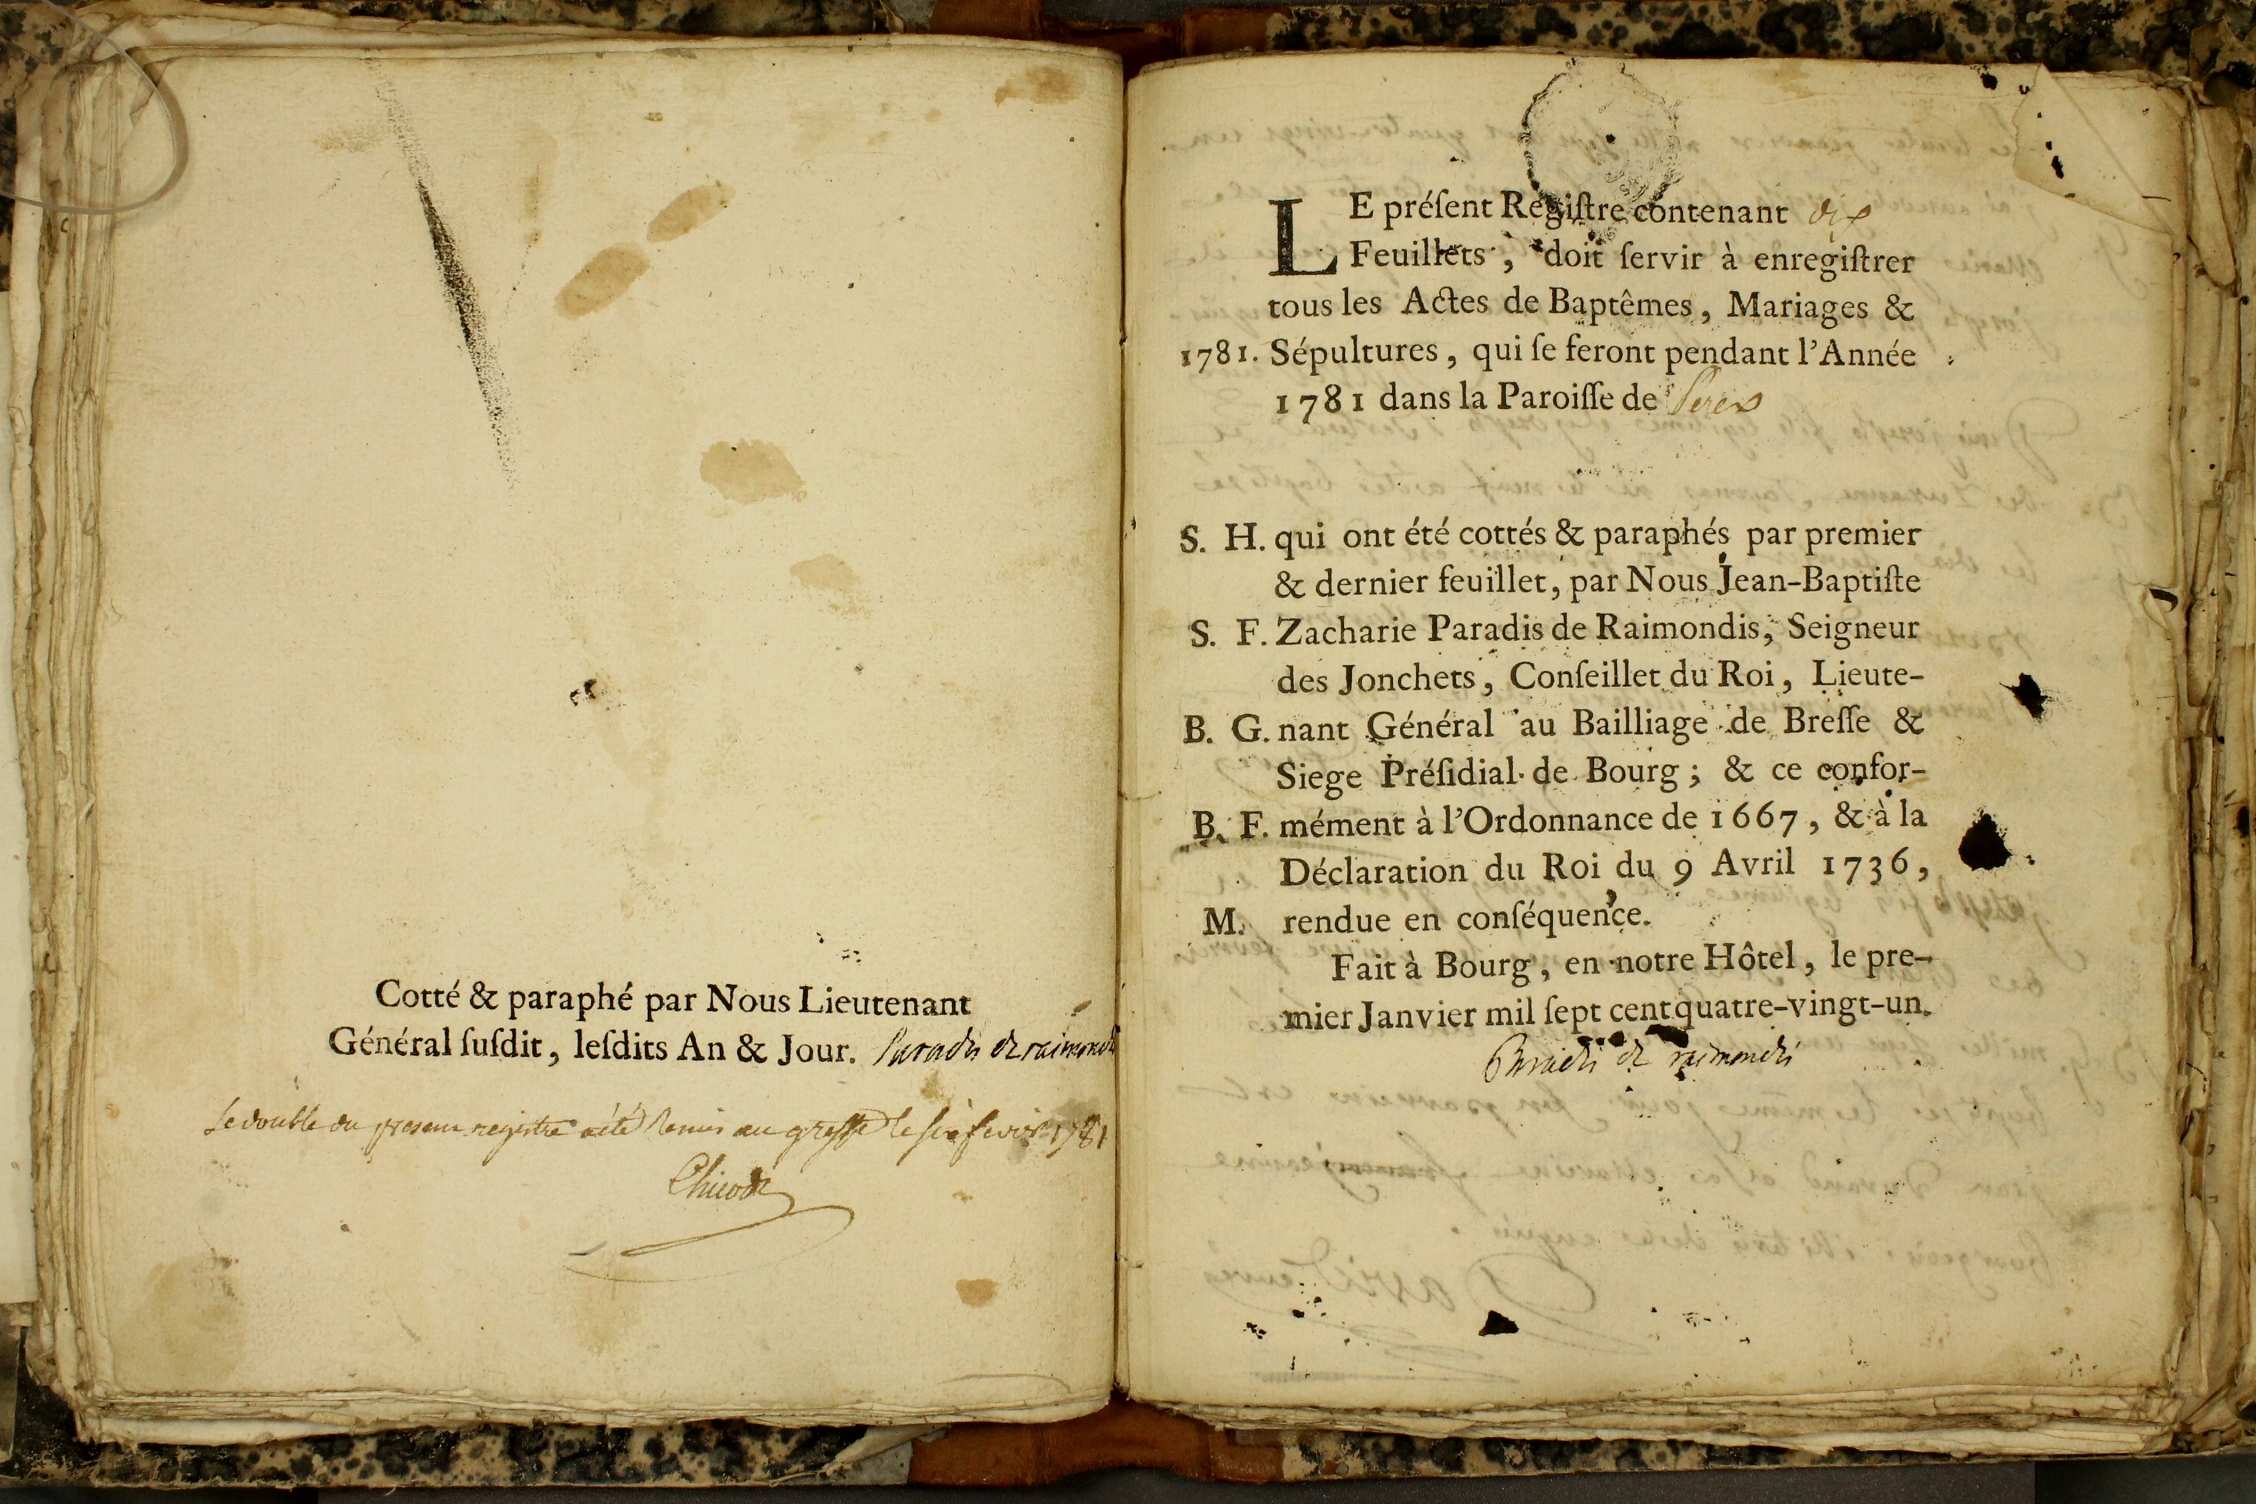 Cotté & paraphé par Nous Lieutenant
Général ſuſdit, leſdits An & Jour. Paradis de raimondis
Le double du present registre a été Remis au greffe le six fevrier 1781
LE préſent Regiſtre contenant dix
Feuillets, doit ſervir à enregiſtrer
tous les Actes de Baptêmes, Mariages &
1781. Sépultures, qui ſe feront pendant l'Année
1781 dans la Paroiſſe de
S. H. qui ont été cottés & paraphés par premier
& dernier feuillet, par Nous Jean-Baptiſte
S. F. Zacharie Paradis de Raimondis, Seigneur
des Jonchets, Conſeillet du Roi, Lieute-
B. G. nant Général au Bailliage de Breſſe &
Siege Préſidial de Bourg; & ce confor-
B. F. mément à l'Ordonnance de 1667, & à la
Déclaration du Roi du 9 Avril 1736,
M. rendue en conſéquence.
Fait à Bourg, en notre Hôtel, le pre-
mier Janvier mil ſept cent quatre-vingt-un.
Paradis de raimondis